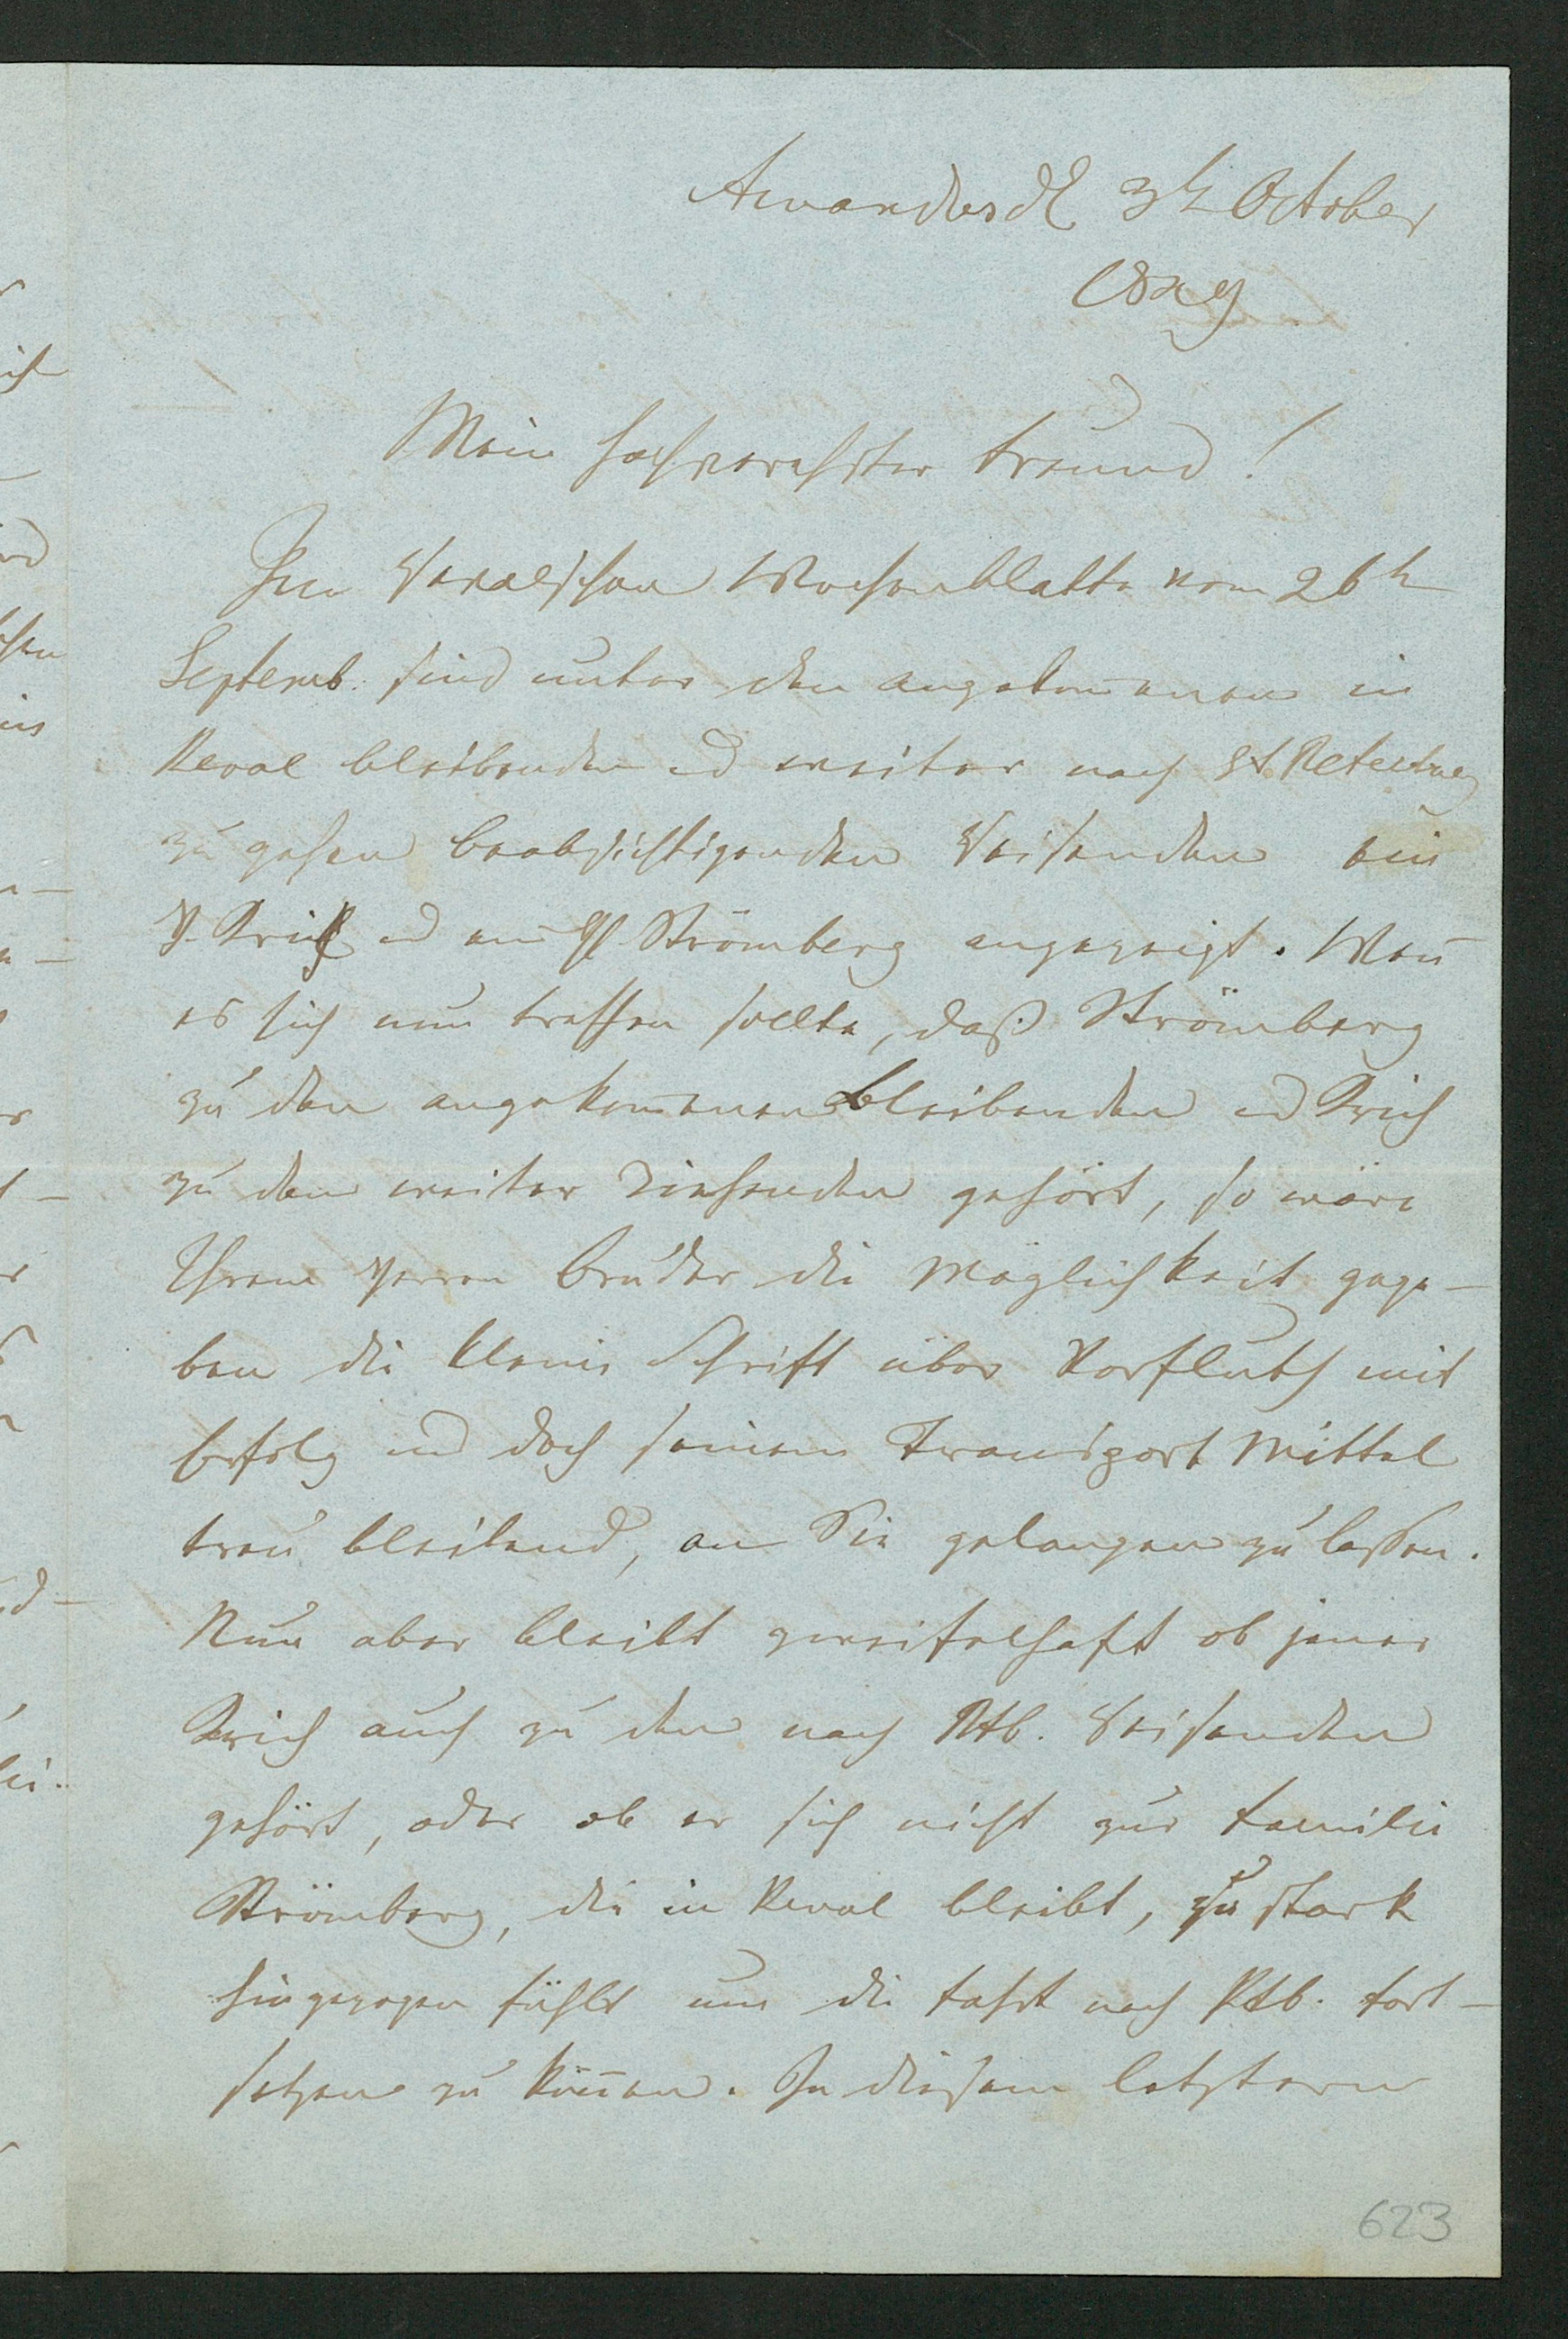 Awandus d 3t October
Mein hochverehrter Freund!
Im Revalschen Wochenblatte vom 26t
Septemb. sind unter den angekom̅enen in
Reval bleibenden und weiter nach St Petersburg
zu gehen beabsichtigenden Reisenden ein
H. und ein H Strömberg angezeigt. Wen̅
es sich nun treffen sollte, daß Strömberg
zu den angekom̅enen bleibenden und Drich
zu den weiter ziehenden gehört, so wäre
Ihrem Herrn Bruder die Möglichkeit gege-
ben die kleine Schrift über Vorfluth mit
Erfolg und doch seinem Transport Mittel
treu bleibend, an Sie gelangen zu lassen.
Nun aber bleibt zweifelhaft ob jener
Drich auch zu den nach Ptb. Reisenden
gehört, oder ob er sich nicht zur Familie
Strömberg, die in Reval bleibt, zu stark
hingezogen fühlt um die Fahrt nach Ptb. fort-
setzen zu kön̅en. In diesem letztern
623